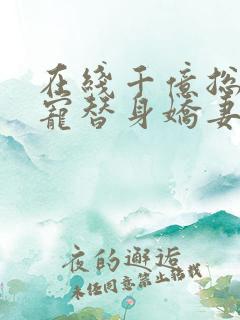 在线千億总
寵替身嬌妻
夜的邂逅
未经同意禁止转载